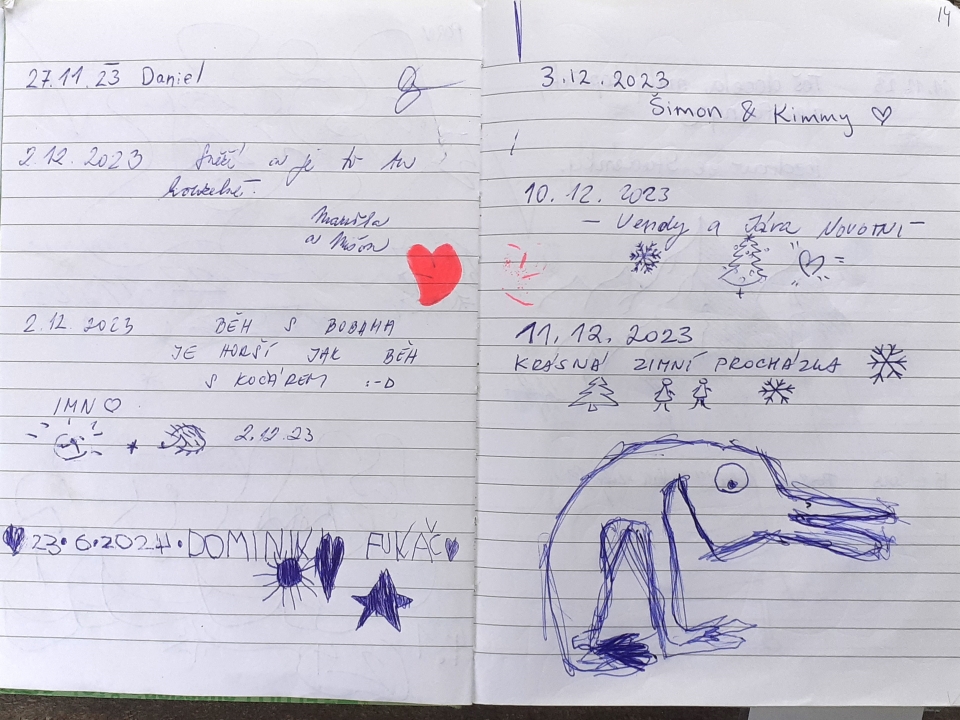 27.11.23 Daniel
2.12.2023 Sněží a je to tu
kouzelné.
a
2.12.2023 BĚH S BOBAMA
JE HORŠÍ JAK BĚH
S KOČÁREM :-D
IMN ♡
2.12.23
23.6.2024. DOMINIK FUKAČ
14
3.12.2023
Šimon & Kimmy ♡
10.12.2023
- Vendy a Jára NOVOTNÍ -
11.12.2023
KRÁSNÁ ZIMNÍ PROCHÁZKA